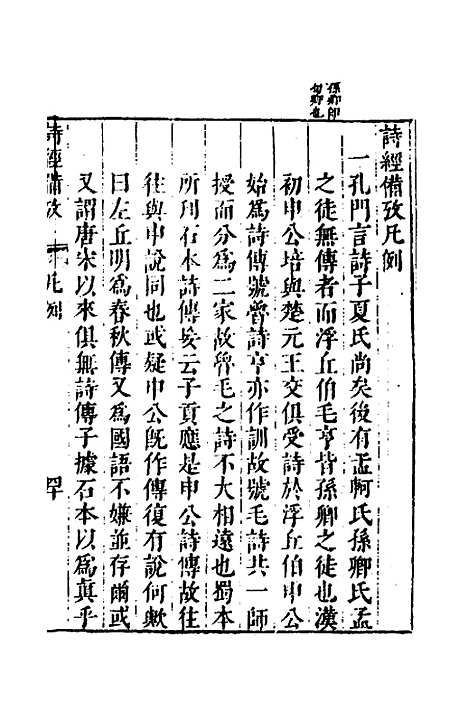 孫卿即
荀卿也
詩經備攷凡例
一孔門言詩子夏氏尚矣後有孟軻氏孫卿氏孟
之徒無傳者而浮丘伯毛亨皆孫卿之徒也漢
初申公培與楚元王交俱受詩於浮丘伯申公
始為詩傳號魯詩亨亦作訓故號毛詩共一師
授而分為二家故魯毛之詩不大相遠也蜀本
所刊石本詩傳妄云子貢應是申公詩傳故往
往與申說同也或疑申公旣作傳復有說何歟
曰左丘明為春秋傳又為國語不嫌並存爾或
又謂唐宋以來俱無詩傳子據石本以為真乎
詩經備攷
凡例